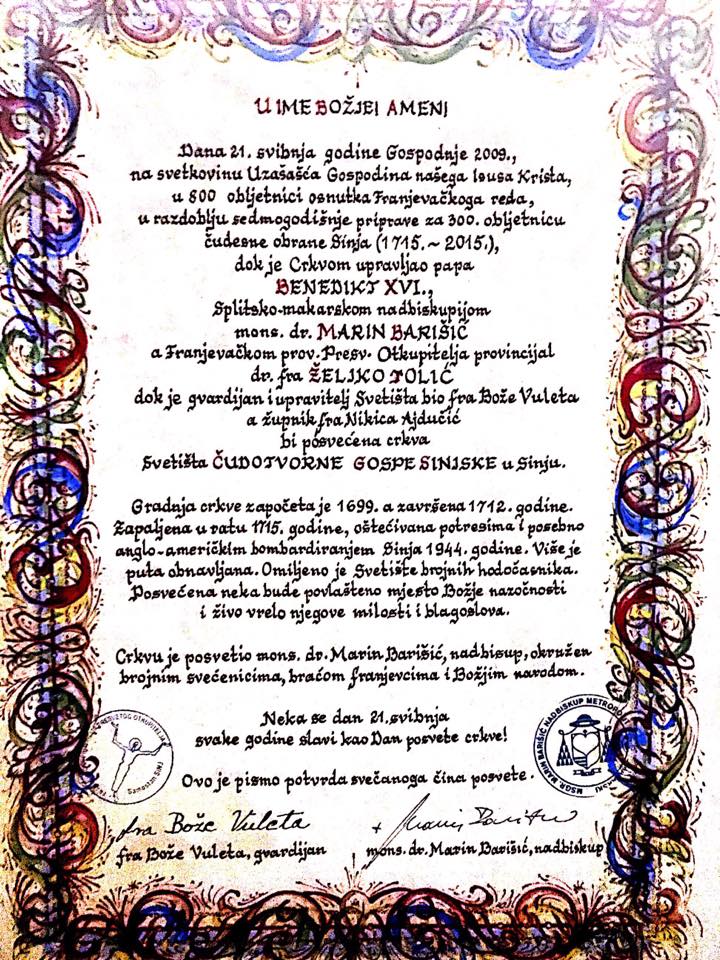 U IME BOŽJE! AMEN!
Dana 21. svibnja godine Gospodnje 2009.,
na svetkovinu Uzašašća Gospodina našega Isusa Krista,
u 800 obljetnici osnutka Franjevačkoga reda,
u razdoblju sedmogodišnje priprave za 300. obljetnicu
čudesne obrane Sinja (1715. ~ 2015.),
dok je Crkvom upravljao papa
BENEDIKT XVI.,
Splitsko-makarskom nadbiskupijom
mons. dr. MARIN BARIŠIĆ
a Franjevačkom prov. Presv. Otkupitelja provincijal
dr. fra ŽELJKO TOLIĆ
dok je gvardijan i upravitelj Svetišta bio fra Bože Vuleta
a župnik fra Nikica Ajdučić
bi posvećena crkva
Svetišta ČUDOTVORNE GOSPE SINJSKE u Sinju.
Gradnja crkve započeta je 1699. a završena 1712. godine.
Zapaljena u ratu 1715. godine, oštećivana potresima i posebno
anglo-američkim bombardiranjem Sinja 1944. godine. Više je
puta obnavljana. Omiljeno je Svetište brojnih hodočasnika.
Posvećena neka bude povlašteno mjesto Božje nazočnosti
i živo vrelo njegove milosti i blagoslova.
Crkvu je posvetio mons. dr. Marin Barišić, nadbisup, okružen
brojnim svećenicima, braćom franjevcima i Božjim narodom.
Neka se dan 21. svibnja
svake godine slavi kao Dan posvete crkve!
Ovo je pismo potvrda svečanoga čina posvete.
MSGR. MARIN BARIŠIĆ NADBISKUP
fra Bože Vuleta + Marin Barišić
fra Bože Vuleta, gvardijan mons. dr. Marin Barišić, nadbiskup